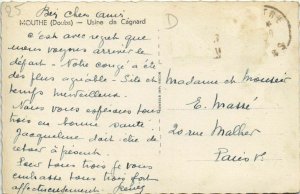 25
Bien Chers Amis
D
MOUTHE (Doubs) — Usine de Cagnard
c'est avec regret que
nous voyons arriver le
départ - Notre congé a été
des plus agréable - Site et
temps merveilleux.
Nous vous espérons tous
trois en bonne santé.
Jacqueline doit être de
retour à présent.
tous trois je vous
tous trois fort
affectueusement
Madame et Monsieur
E. Massé
20 rue Malher
Paris